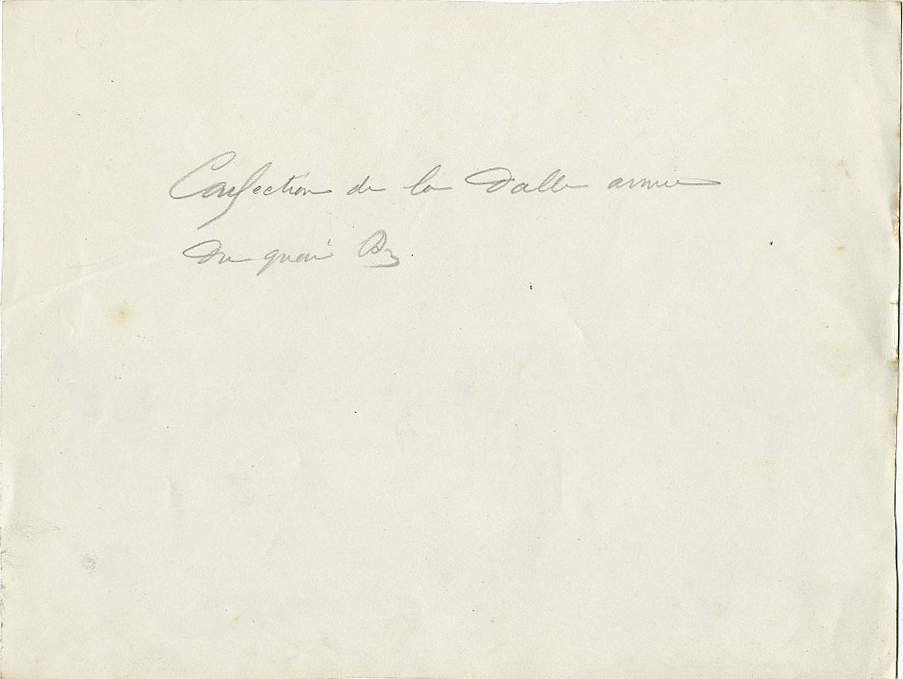 Confection de la Dalle armée
du quai